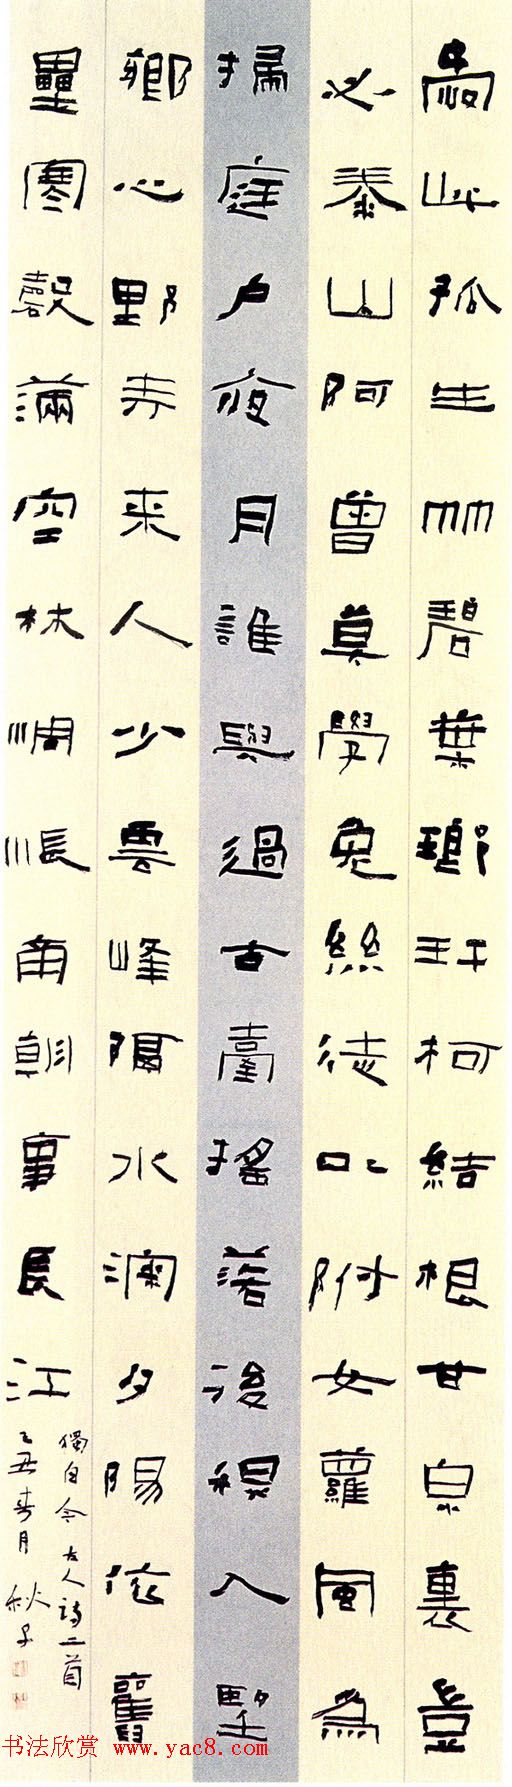 愛此孤生竹碧葉瑯玕柯結根甘泉裏豈
必泰山阿曾莫學兔絲徒以附女蘿風為
掃庭户夜月誰與過古臺搖落後秋入望
鄉心野寺来人少雲峰隔水深夕陽依舊
壘寒磬滿空林惆悵南朝事長江
獨自今 古人詩二首
乙丑春月 秋子
书法欣赏 www.yac8.com